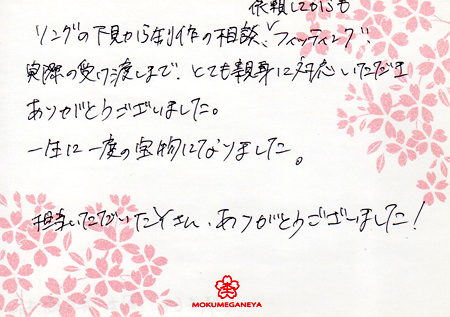 依頼してからも
リングの下見から制作の相談、フィッティング、
実際の受け渡しまで、とても親身に対応いただき
ありがとうございました。
一生に一度の宝物になりました。
担当いただいたYさん、ありがとうございました!
MOKUMEGANEYA